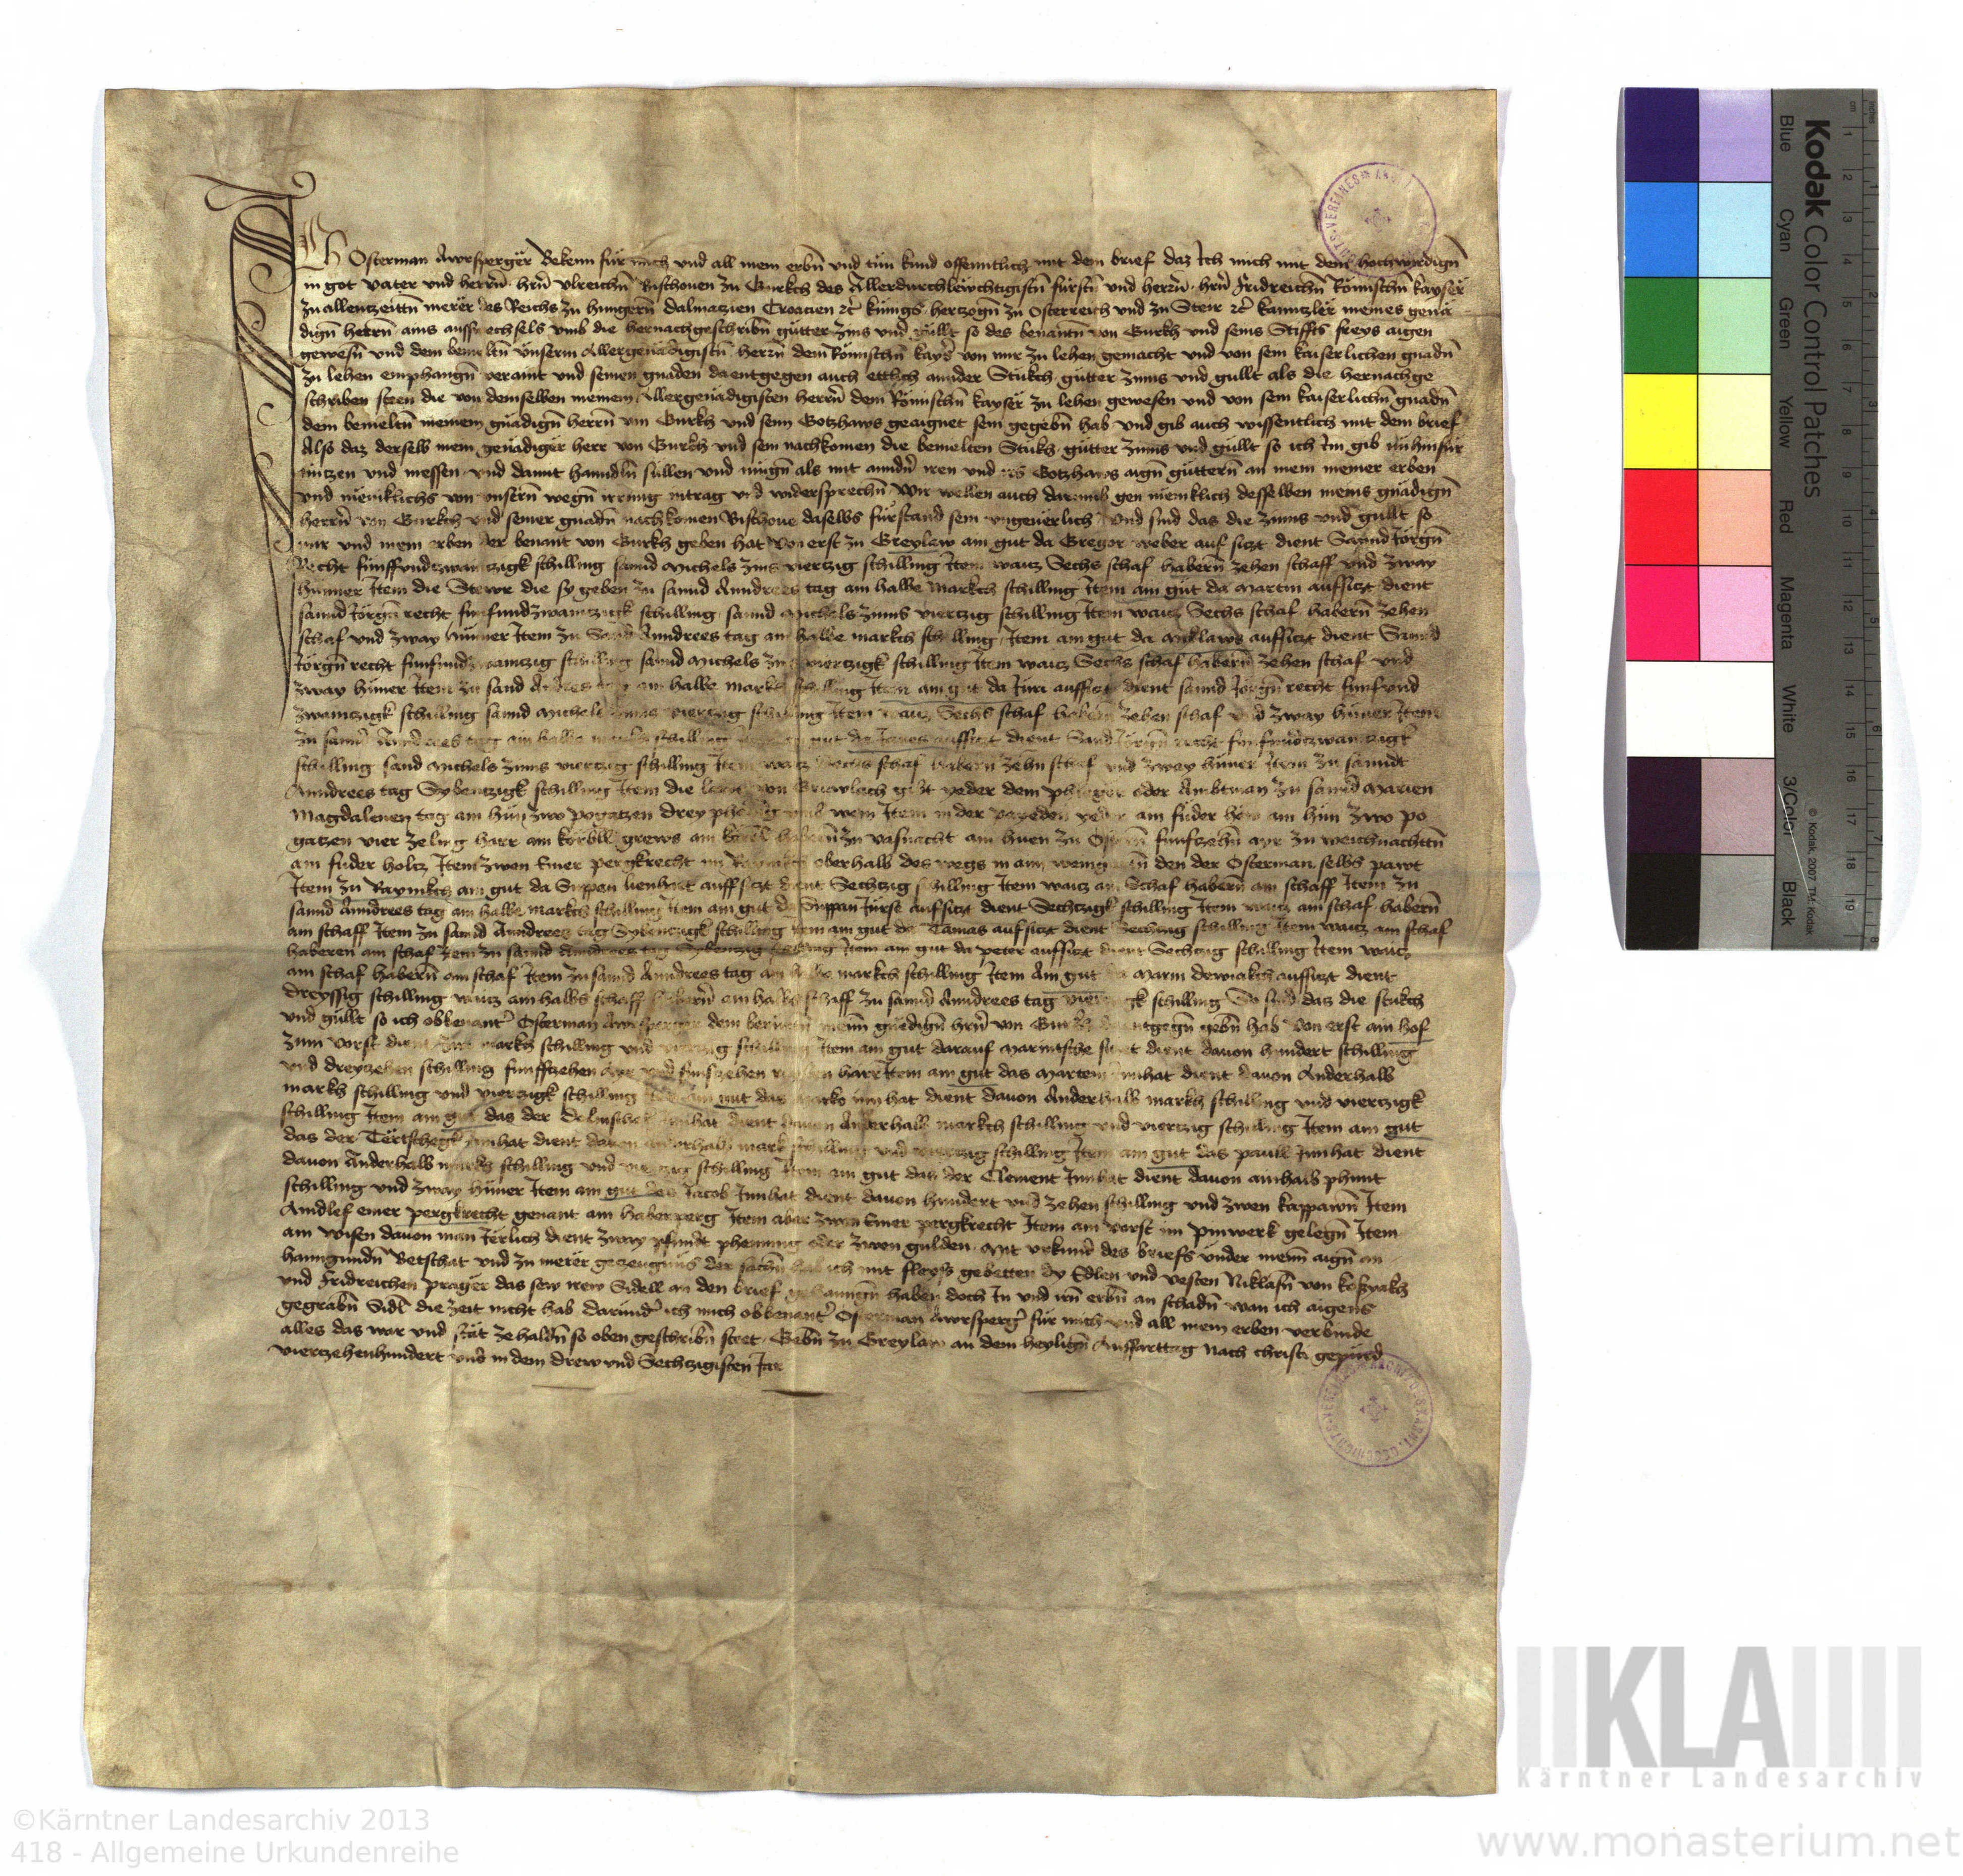 Ich Osterman Awrsperger Bekenn für mich und all mein erbn̄ und tün kund offenntlich mit dem brief daz Ich mich mit dem hochwirdign̄
in got vater und herrn̄ hrn̄ Ulreichn̄ Bischouen zu Gurkch des Allerdurchlewchtigistn̄ fürstn̄ und herrn̄ hrn̄ Fridreichn̄ Römischn̄ kayser
zu allentzeittn̄ merer des Reichs zu hungern̄ Dalmatzien Croacien ꝛc̄ künigs hertzogn̄ zu Osterreich und zu Steir ꝛc̄ kanntzler meines genä
dign̄ herrn̄ ains auffwechsels umb die hernachgeschribn̄ gütter zins und güllt so des benantn̄ von Gurkh und seins Stiffts freys aigen
gewesn̄ und dem bemeltn̄ unserm Allergenädigistn̄ herrn̄ dem Römischn̄ kayser von mir zu lehen gemacht und von sein kaiserlichen gnadn̄
zu lehen emphangn̄ veraint und seinen gnaden daentgegen auch ettlich annder Stukch gütter zinns und gullt als die hernachge
schriben steen die von demselben meinem Allergenädigisten herrn̄ dem Römischn̄ kayser zu lehen gewesen und von sein kaiserlichn̄ gnadn̄
dem bemeltn̄ meinem gnädign̄ herrn̄ von Gurkh und seim Gotzhaws geaignet sein gegebn̄ hab und gib auch wissentlich mit dem brief
Also daz derselb mein genädiger herr von Gurkch und sein nachkomen die bemelten Stukh gütter zinns und güllt so ich Im gib nü hinfür
nützen und niessen und damit hanndln̄ süllen und mügn̄ als mit anndn̄ iren und irs Gotzhaws aign̄ güttern̄ an mein meiner erben
und meniklichs von unsern̄ wegn̄ irrung intrag und widersprechn̄ Wir wellen auch darumb gen meniklich desselben meins gnädign̄
herrn̄ von Gurkch und seiner gnadn̄ nachkomen Bischoue daselbs fürstand sein ungeuerlich Und sind das die zinns und güllt so
mir und mein erben der benant von Gurkh geben hat Von erst zu Greylaw ain gut da Gregor weber auf siczt dient Sannd Jörgn̄
Recht fünffundzwainczigk schilling sannd Michels zins vierczig schilling Item waicz Sechs schaf habern̄ zehen schaff und zway
hünner Item die Stewr die sy geben zu sannd Anndrees tag ain halbe Markch schilling Item ain gut da Martin auffsiczt dient
sannd Jörgn̄ recht funfundzwainczigk schilling sannd Michels zinns vierczig schilling Item waicz Sechs schaf habern̄ zehen
schaf und zway hünner Item zu Sannd Anndrees tag ain halbe markch schilling Item ain gut da Micklaws auffsiczt dient Sannd
Jörgn̄ recht funfundzwainczig schilling sannd Michels zins vierczigk schilling Item waicz Sechs schaf habern̄ zehen schaf und
zway hüner Item zu sand Andres tag ain halbe markch schilling Item ain gut da Juri auffsiczt dient sannd Jörgn̄ recht funfund
zwainczigk schilling sannd Michels zinns vierczig schilling Item waicz Sechs schaf habern̄ zehen schaf und zway hüner Item
zu sannd Anndrees tag ain halbe markch schilling Item ain gut da auffsiczt dient Sand Jörgn̄ recht funfundzwainczigk
schilling sand Michels zinns vierczig schilling Item waicz Sechs schaf habern̄ zehn schaf und zway hüner Item zu sanndt
Anndrees tag Sybenczigk schilling Item die lewt von gibt yeder dem phleger oder Ambtman zu sannd Marien
Magdalenen tag ain hün zwo pogatzen drey phening umb wein Item in der yeder ain fuder hew ain hün zwo po
gatzen vier zeling harr ain körbll grews ain habern̄ zu vasnacht ain huen zu Ostern̄ funfczehn̄ ayr zu weichnachttn̄
ain fuder holcz Item zwen Emer pergkrecht im oberhalb des wegs in ain weingartn̄ den der Osterman selbs pawt
Item zu Raynikch ain gut da Suppan lienhart auffsiczt dient Sechczig schilling Item waicz ain Schaf habern̄ ain schaff Item zu
sannd Anndrees tag ain halbe markch schilling Item ain gut da Suppan Jürse aufsiczt dient Sechczigk schilling Item waicz ain schaf habern̄
ain schaff Item zu sannd Anndrees tag Sybenczigk schilling Item ain gut da Tamas aufsiczt dient Sechczig schilling Item waicz ain schaf
haberen ain schaf Item zu sannd Anndrees tag Sybenczig schilling Item ain gut da peter auffsiczt dient Sechczig schilling Item waicz
ain schaf habern̄ ain schaf Item zu sannd Anndrees tag ain halbe markch schilling Item Ain gut da Marin auffsiczt dient
dreyssig schilling waicz ain halbs schaff habern̄ ain halbs schaff zu sannd Anndrees tag vierczigk schilling So sind daz die stukch
und gullt so ich obbenanter Osterman Awrsperger dem benantn̄ meinn gnedign̄ hrn̄ von Gurkh daentgegn̄ gebn̄ hab Von erst ain hof
zum vorst dient markh schilling und vierczig schilling Item ain gut darauf siczt dient dauon hundert schilling
und dreyzehen schilling funffczehen ayr und funfczehen harr Item ain gut das Marten innhat dient dauon Anderhalb
markh schilling und vierczigk schilling Item ain gut das Marko innhat dient dauon Anderhalb markh schilling und vierczigk
schilling Item ain gut das der innhat dient dauon Anderhalb markch schilling und vierczig schilling Item ain gut
das der Tertschegk innhat dient dauon anderhalb markh schilling und vierczig schilling Item ain gut das paull Innhat dient
dauon Anderhalb markh schilling und vierczig schilling Item ain gut das der Clement Innhat dient dauon ainhalb phunt
schilling und zway hüner Item ain gut das Jacob Innhat dient dauon hundert und zehen schilling und zwen kappawn̄ Item
Aindlef emer pergkrecht genant am haberperg Item aber zwen Emer pergkrecht Item ain vorst im pinwerk gelegn̄ Item
ain wisen dauon man Jerlich dient zway phundt phenning oder zwen gulden Mit urkund des briefs under meinn aign̄ an
hanngundn̄ Betschat und zu merer gezeugnüs der sachn̄ hab ich mit fleyss gebetten dy Edlen und vesten Niklasn̄ von
und Fridreichen prager das sew irew Sidell an den brief gehanngn̄ haben doch In und irn̄ erbn̄ an schadn̄ wan ich aigens
gegrabn̄ Sidl die zeit nicht hab darunder ich mich obbenanter Osterman Awrsperger für mich und all mein erben verbinde
alles das war und stät ze haldn̄ so oben geschribn̄ stet Gebn̄ zu Greylaw an dem heylign̄ Auffarttag Nach christi gepurd
vierczehenhundert und in dem drew und Sechczigisten Jar
Kodak Color Control Patches
Blue Cyan Green Yellow Red Magenta White 3/Color Black
© Kodak, 2007 TM: Kodak
cm 1 2 3 4 5 6 7 8 9 10 11 12 13 14 15 16 17 18 19
inches 1 2 3 4 5 6 7 8
KLA
Kärntner Landesarchiv
©Kärntner Landesarchiv 2013
418 - Allgemeine Urkundenreihe
www.monasterium.net